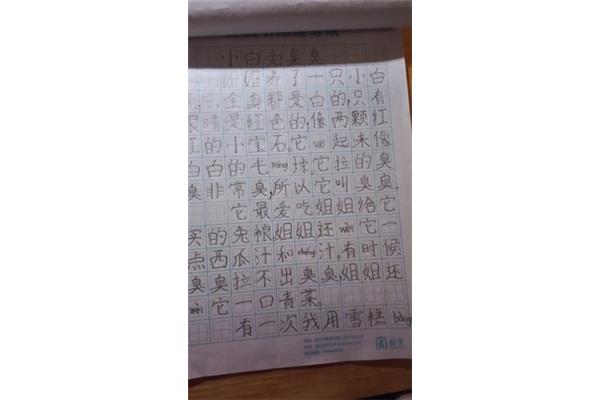 小白兔臭臭
姐姐养了一只小白
兔,它全身都是白的,只有
眼睛是红色的,像两颗红
红的小宝石。它 suō 起来像
白白的毛 róng 球。它拉的臭
臭非常臭,所以它叫臭臭。
它最爱吃姐姐给它
买的兔粮,姐姐还 wèi 它一
点西瓜汁和 chéng 汁。有时候
臭臭拉不出臭臭,姐姐还
wèi 它一口青菜。
有一次我用雪糕 bàng